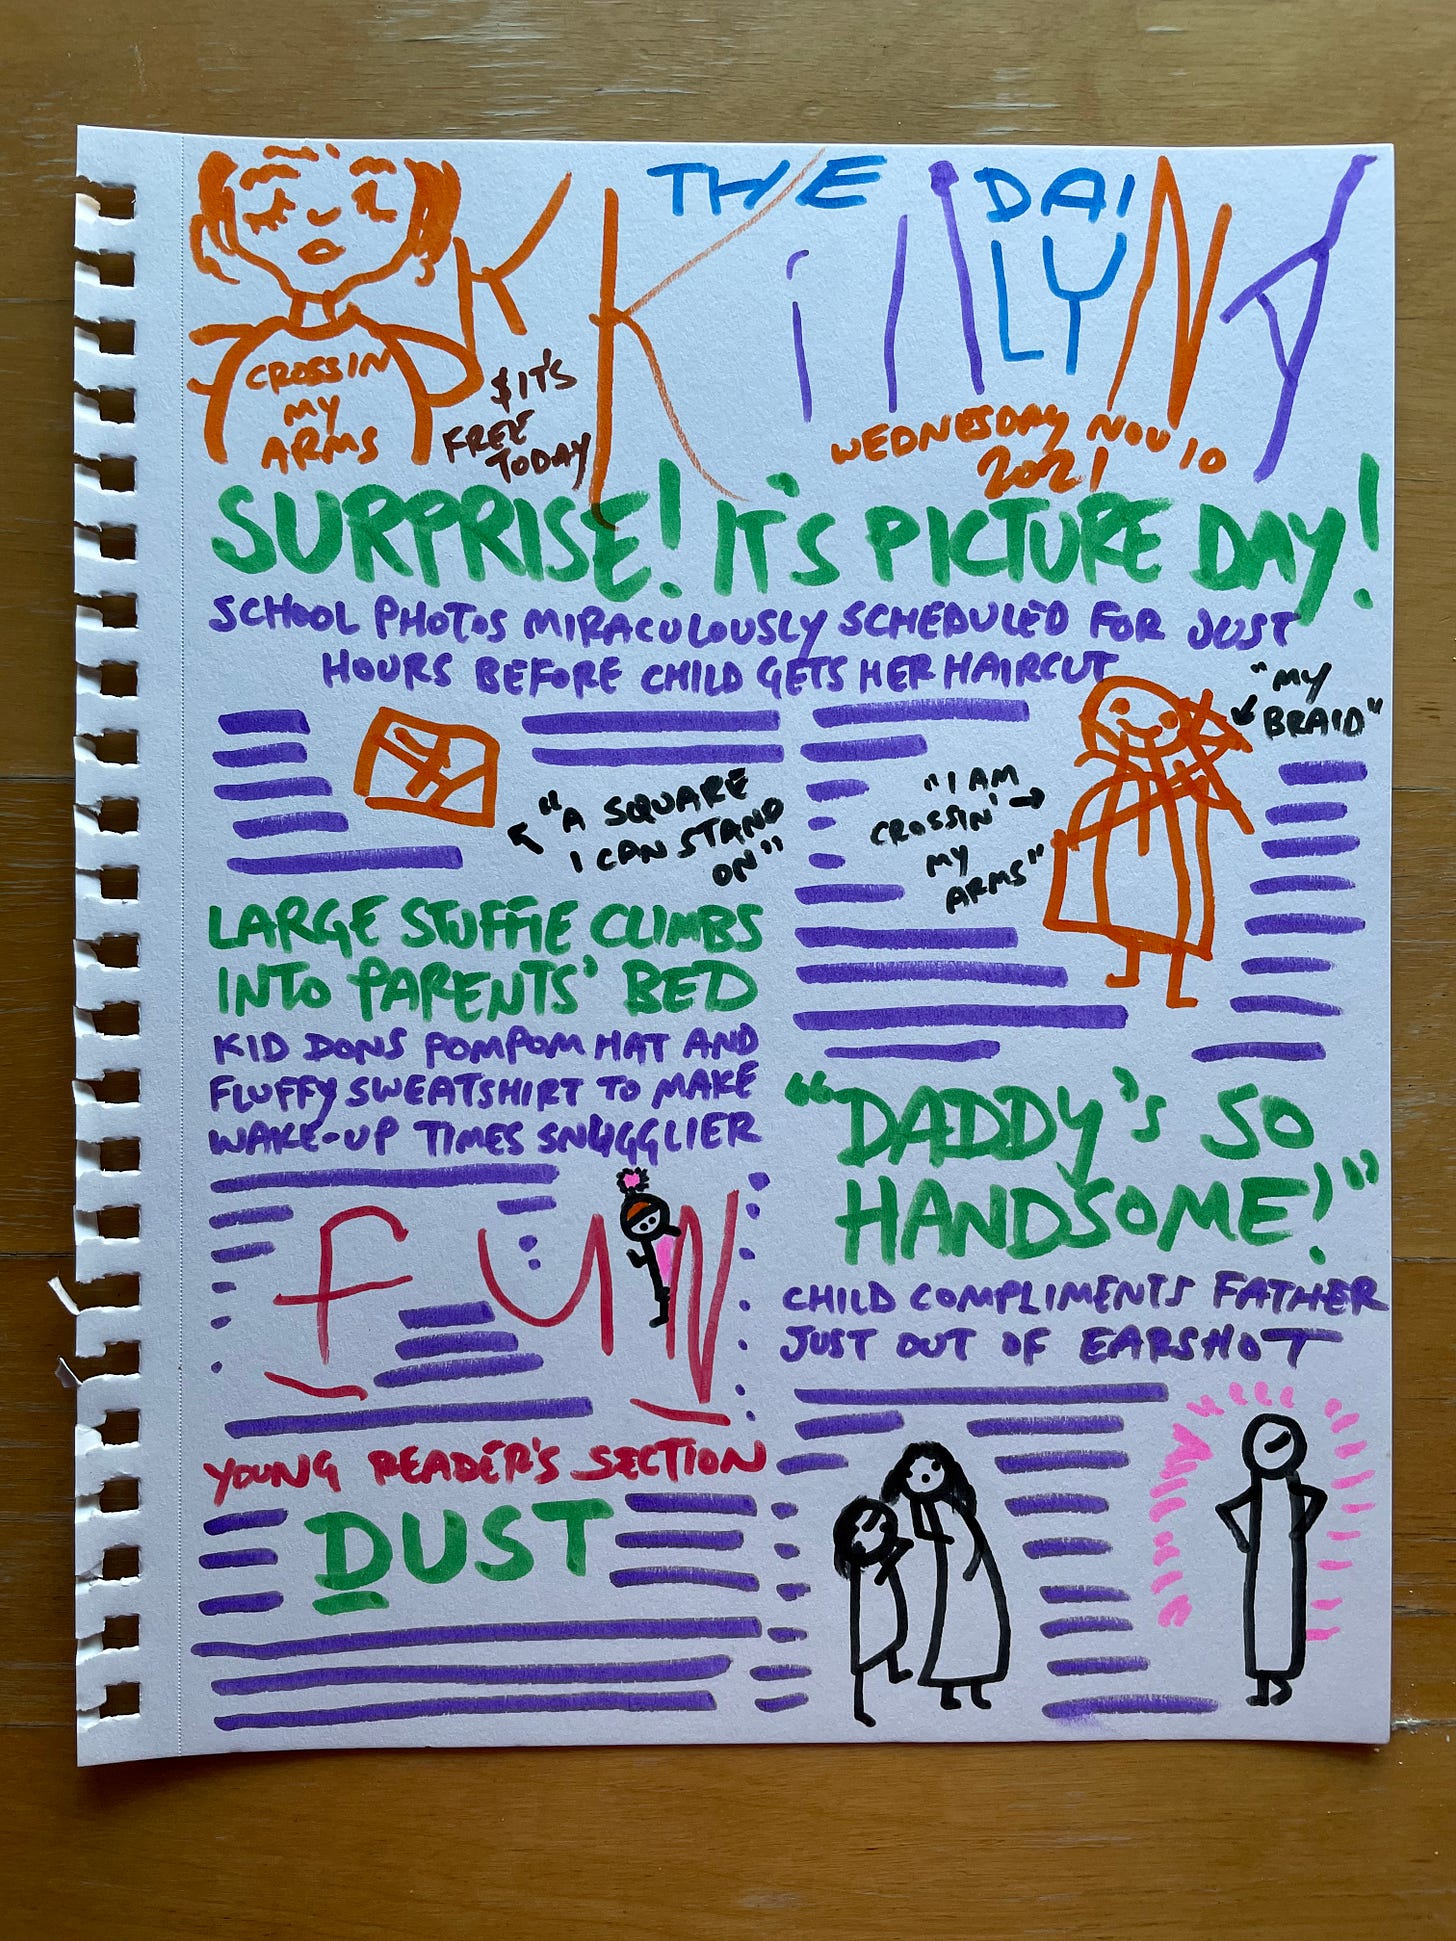 THE DAI
LY
K KillNA
CROSSIN
MY
ARMS
$ IT'S
FREE
TODAY
WEDNESDAY NOV 10
2021
SURPRISE! IT'S PICTURE DAY!
SCHOOL PHOTOS MIRACULOUSLY SCHEDULED FOR JUST
HOURS BEFORE CHILD GETS HER HAIRCUT
"A SQUARE
I CAN STAND
ON"
"I AM
CROSSIN'
MY
ARMS"
"MY
BRAID"
LARGE STUFFIE CLIMBS
INTO PARENTS' BED
KID DONS POMPOM HAT AND
FLUFFY SWEATSHIRT TO MAKE
WAKE-UP TIMES SNUGGLIER
FUN
YOUNG READER'S SECTION
DUST
"DADDY'S SO
HANDSOME!"
CHILD COMPLIMENTS FATHER
JUST OUT OF EARSHOT